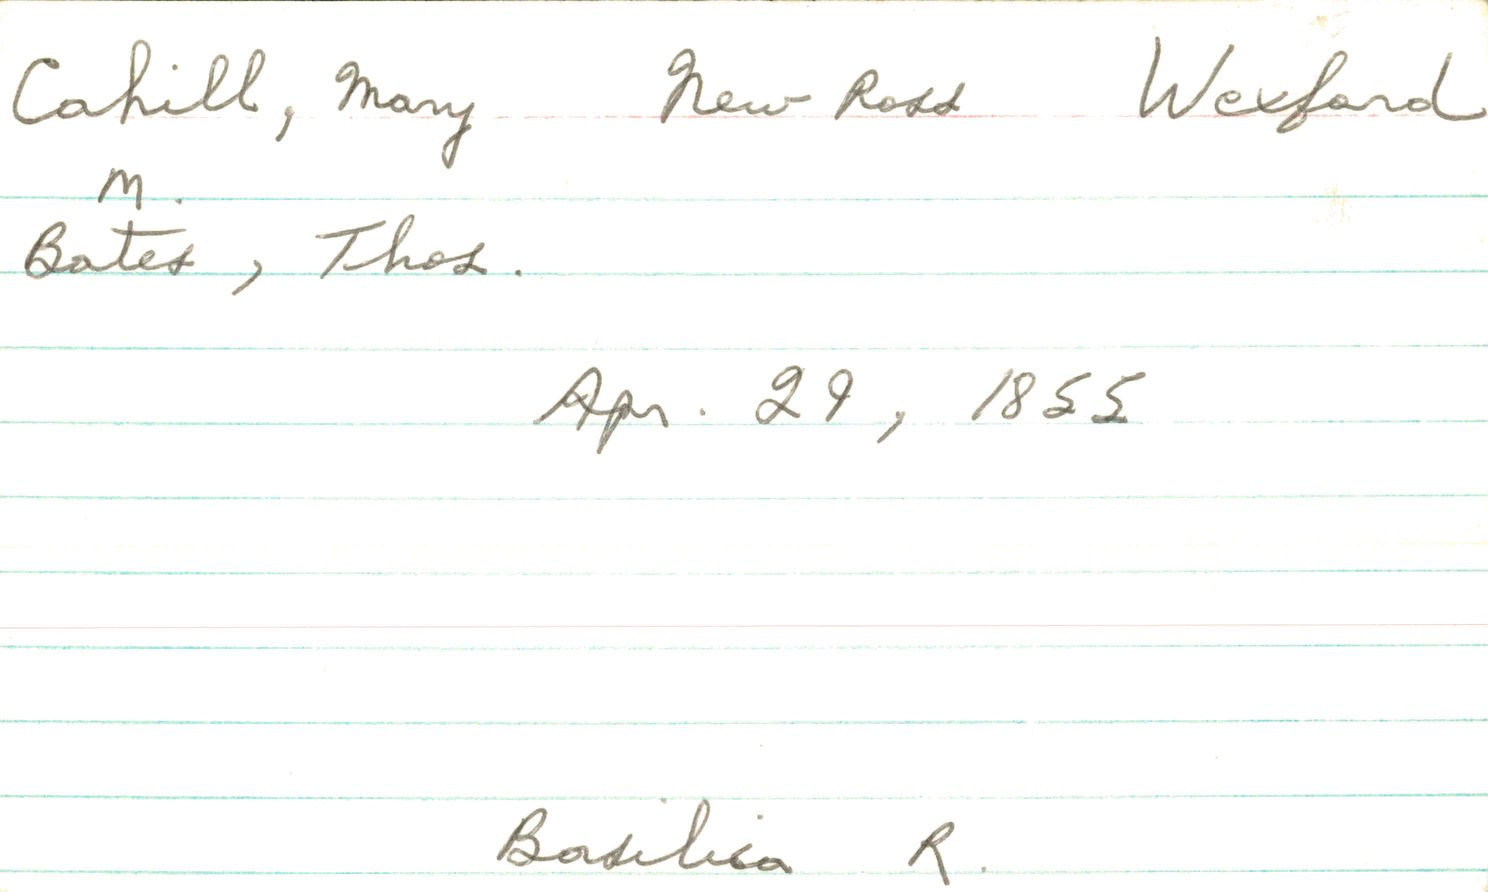 Cahill, Mary New Ross Wexford
M.
Bates, Thos.
Apr. 29, 1855
Basilica R.